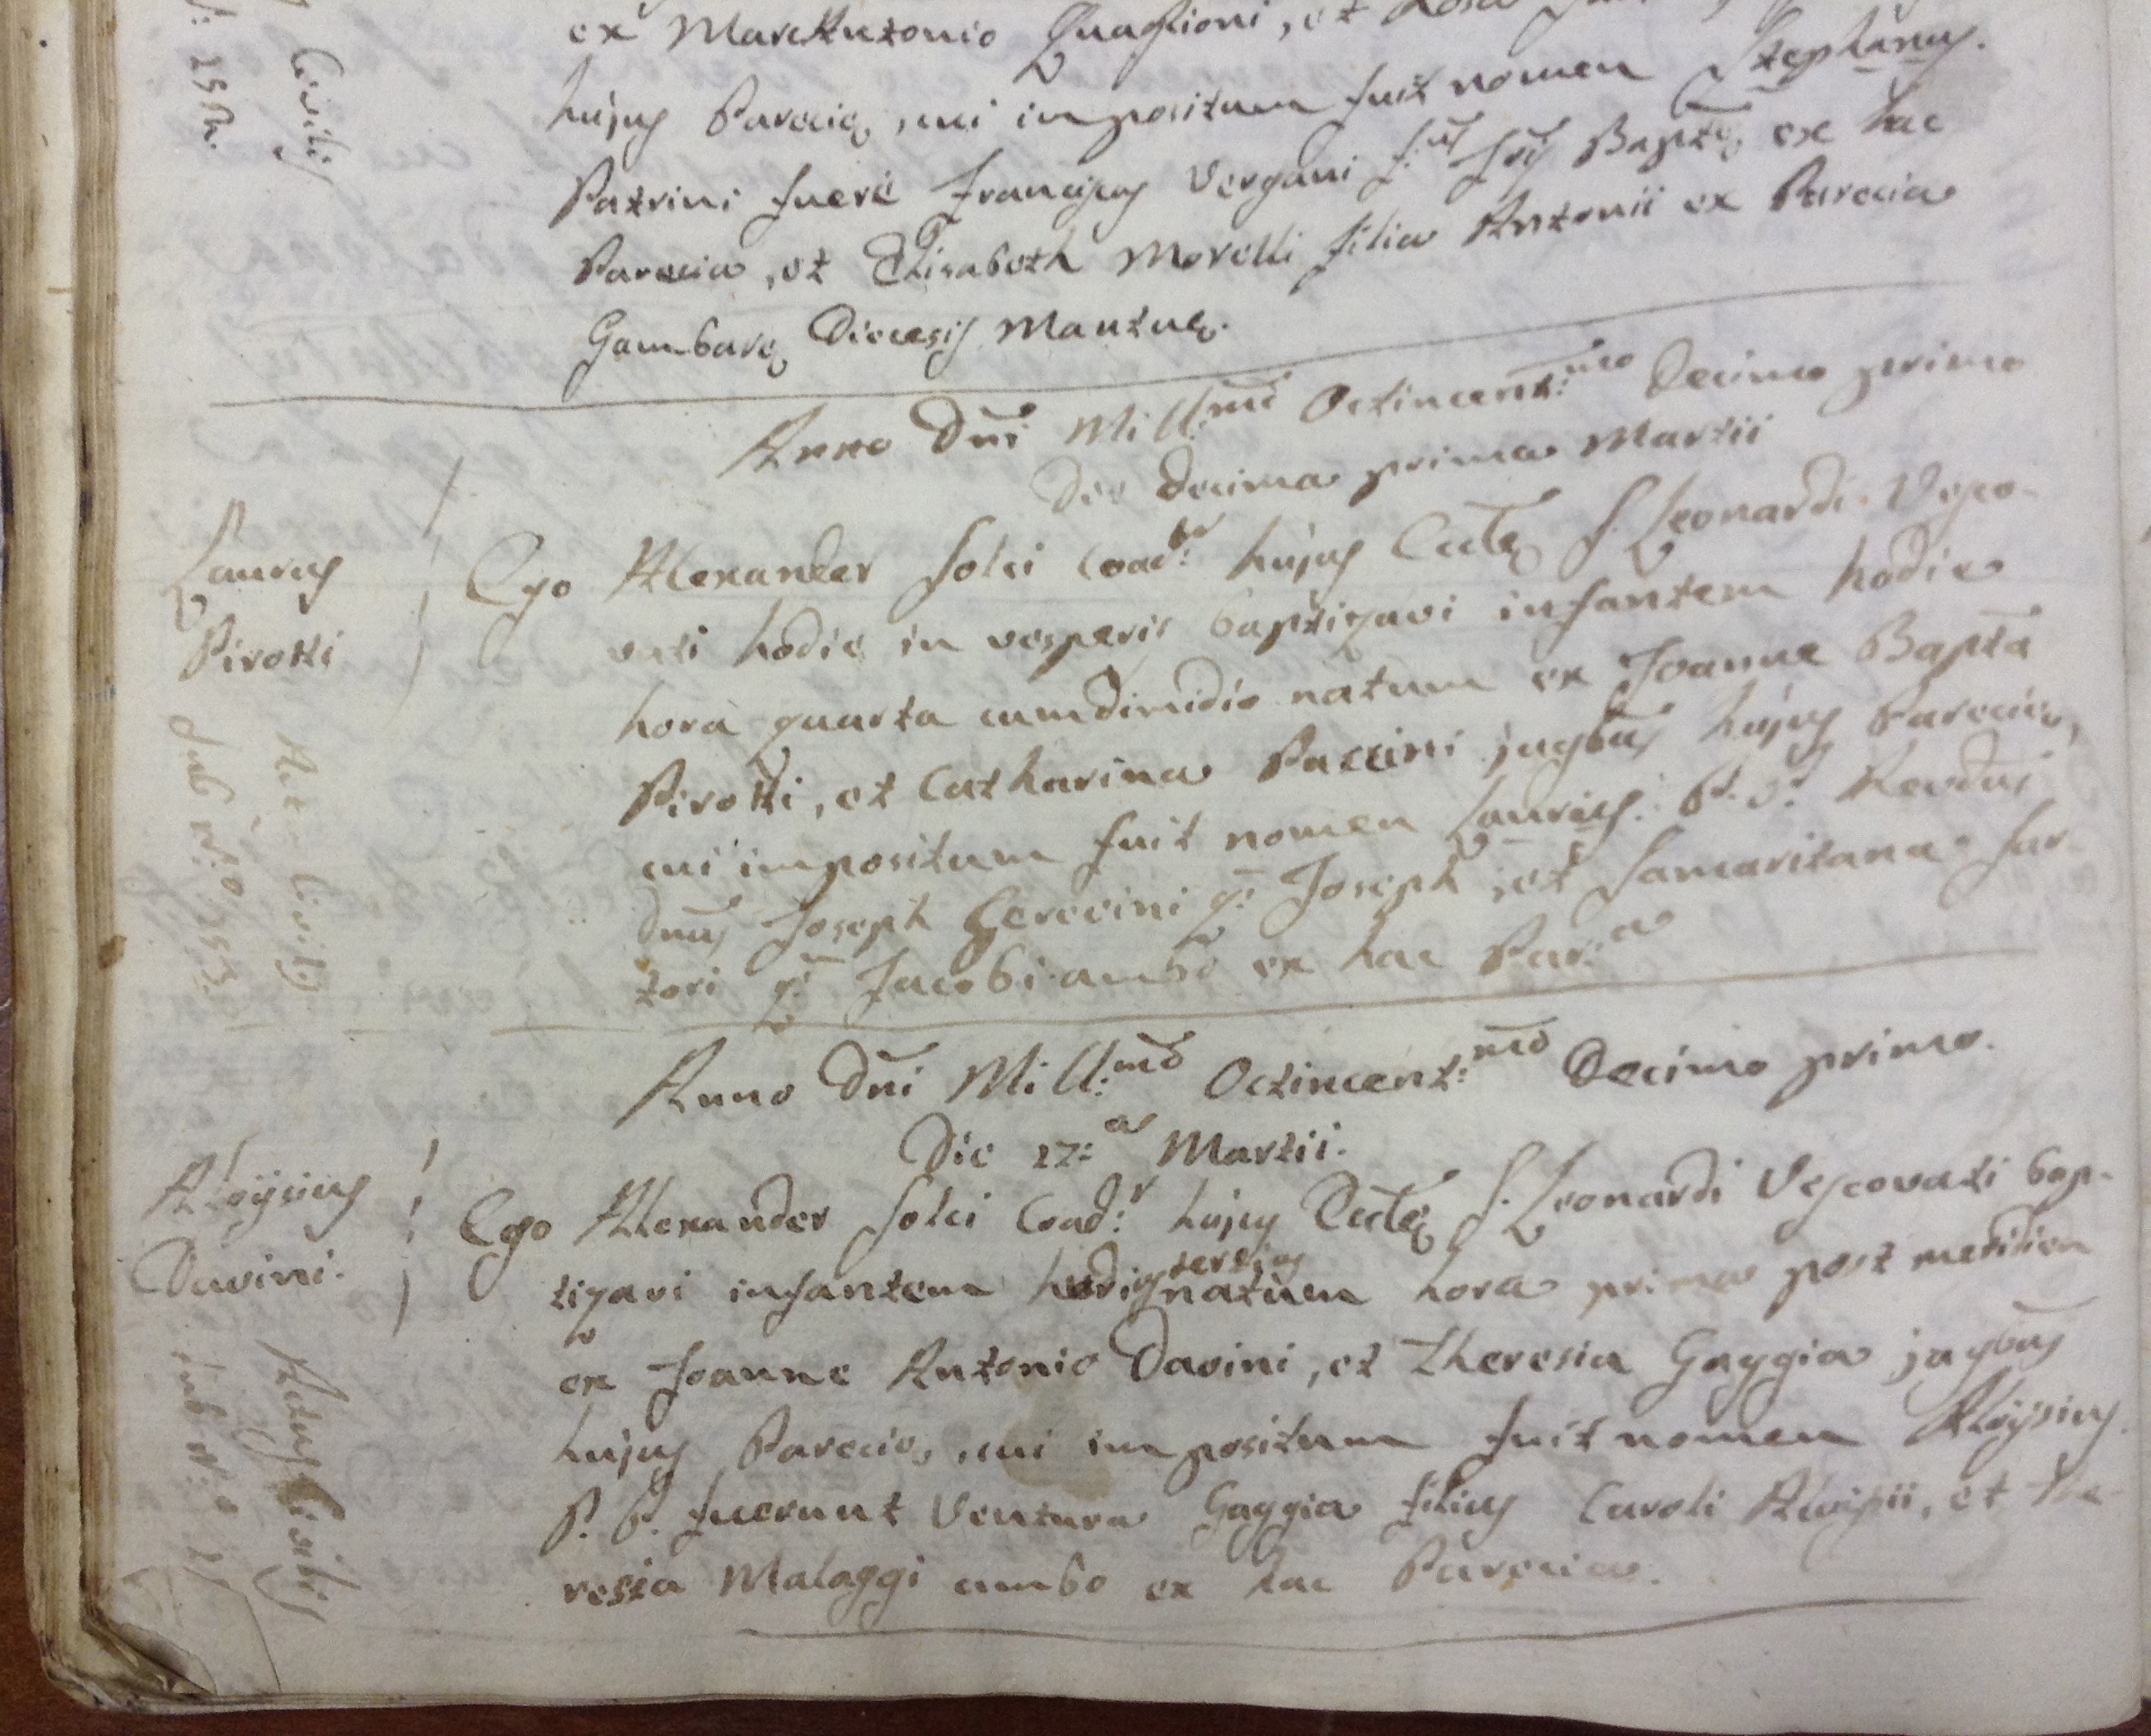 ex MarcAntonio Quaglioni, et Rosa
hujus Parecię, cui impositum fuit nomen Stephanus.
Patrini fuere Franciscus Vergani f.us Jois Baptę ex hac
Parecia, et Elisabeth Morelli filia Antonii ex Parecia
Gambarę Diecesis Mantuę.
Anno Dni Mill:mo Octincent:mo Decimo primo
Die Decima prima Martii
Laurus
Pirotti
Atto Civile
sub N:o
Ego Alexander Solci Coad:r hujus Eccłę S. Leonardi Vesco-
vati hodie in vesperis baptizavi infantem hodie
hora quarta cum dimidio natum ex Joanne Bapta
Pirotti, et Catharina Paccini jugbus hujus Parecię,
cui impositum fuit nomen Laurus. P. P. Revdus
Dnus Joseph Gerevini q: Joseph, et Samaritana Sar-
tori q: Jacobi ambo ex hac Par:a
Anno Dni Mill:mo Octincent:mo Decimo primo.
Die 12:a Martii.
Aloÿsius
Davini.
Actus Civilis
sub N:o
Ego Alexander Solci Coad:r hujus Eccłę S. Leonardi Vescovati bap-
tizavi infantem natum hora prima post meridiem
ex Joanne Antonio Davini, et Theresia Gaggia jugbus
hujus Parecię, cui impositum fuit nomen Aloÿsius.
P. P. fuerunt Ventura Gaggia filius Caroli Aloisii, et The-
resia Malaggi ambo ex hac Parecia.